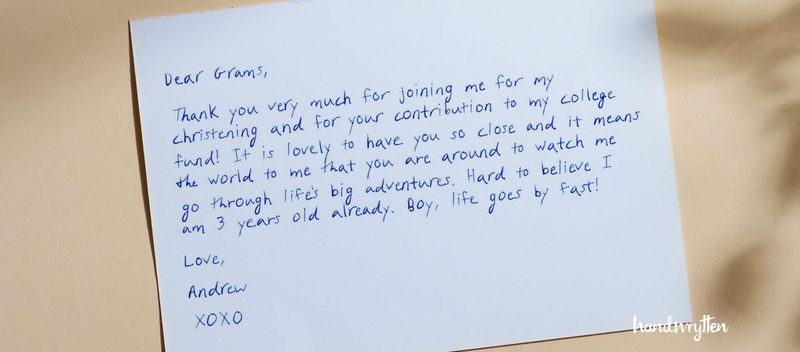 Dear Grams,
Thank you very much for joining me for my
christening and for your contribution to my college
fund! It is lovely to have you so close and it means
the world to me that you are around to watch me
go through life's big adventures. Hard to believe I
am 3 years old already. Boy, life goes by fast!
Love,
Andrew
XOXO
handwrytten